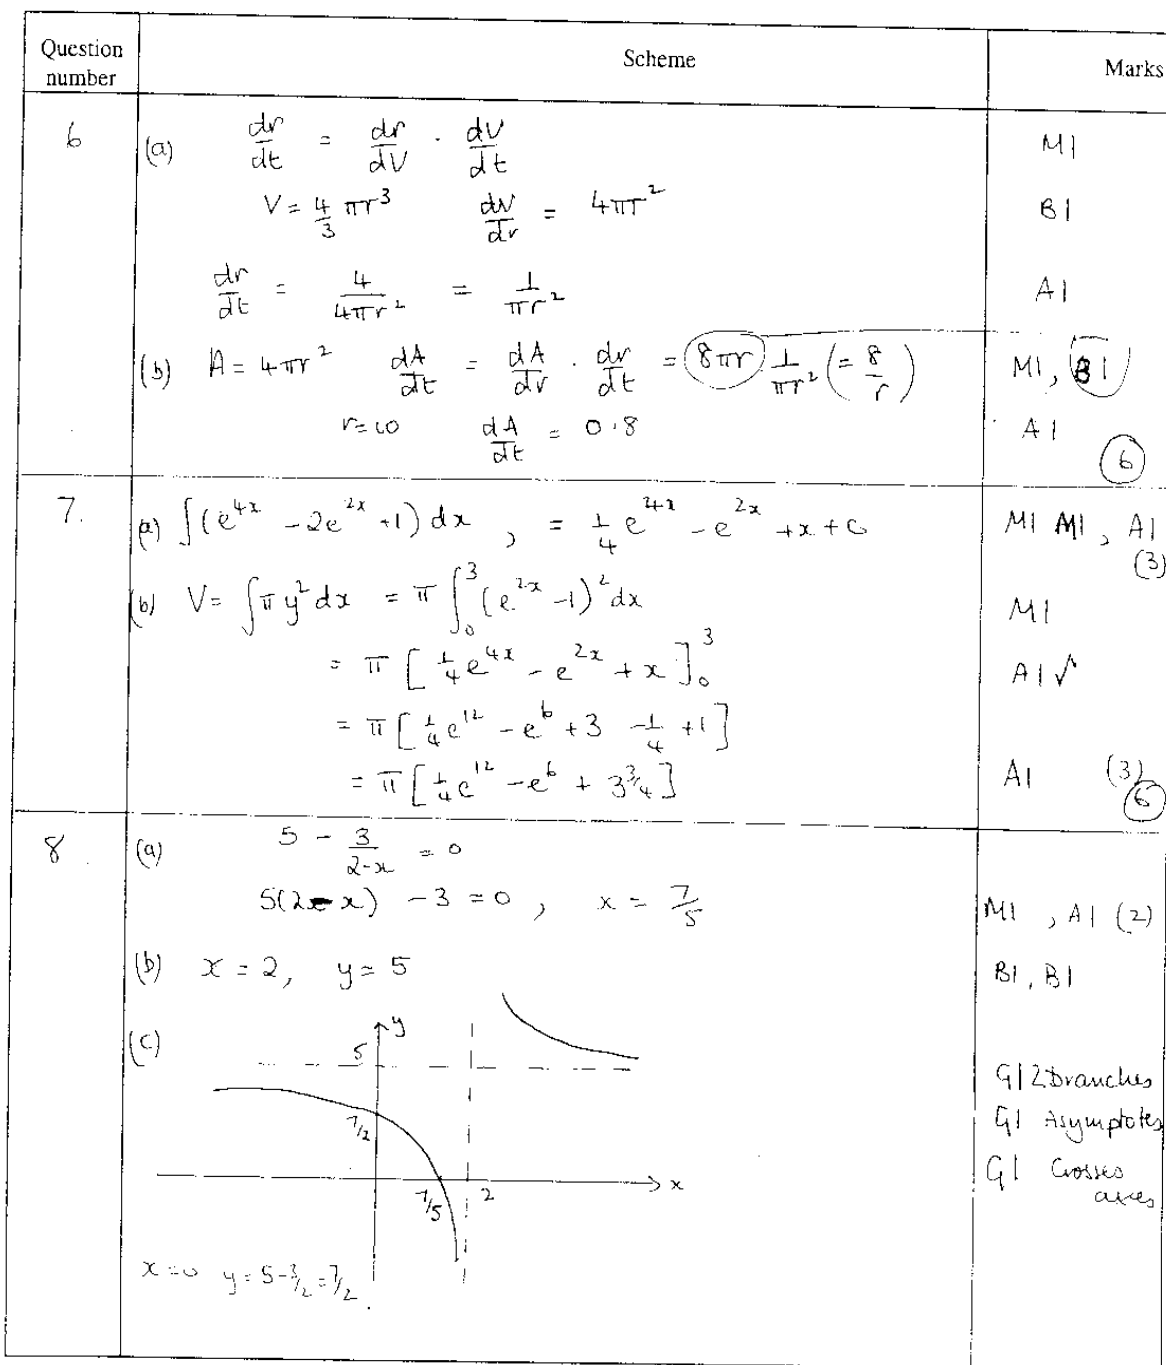 Question number Scheme Marks
6 (a) dr/dt = dr/dV · dV/dt M1
V = 4/3 πr³ dV/dr = 4πr² B1
dr/dt = 4/4πr² = 1/πr² A1
(b) A = 4πr² dA/dt = dA/dr · dr/dt = 8πr 1/πr² (= 8/r) M1, B1
r=10 dA/dt = 0.8 A1
6
7. (a) ∫(e^{4x} - 2e^{2x} + 1) dx , = 1/4 e^{4x} - e^{2x} + x + c M1 M1, A1
(3)
(b) V = ∫πy² dx = π ∫₀³ (e^{2x} - 1)² dx M1
= π [1/4 e^{4x} - e^{2x} + x]₀³ A1√
= π [1/4 e^{12} - e^6 + 3 - 1/4 + 1]
= π [1/4 e^{12} - e^6 + 3 3/4] A1 (3)
6
8. (a) 5 - 3/(2-x) = 0
5(2 - x) - 3 = 0 , x = 7/5 M1 , A1 (2)
(b) x = 2, y = 5 B1, B1
(c) y
5
G1 2 Branches
7/2
G1 Asymptotes
G1 Crosses axes
7/5 2 x
x=0 y = 5 - 3/2 = 7/2